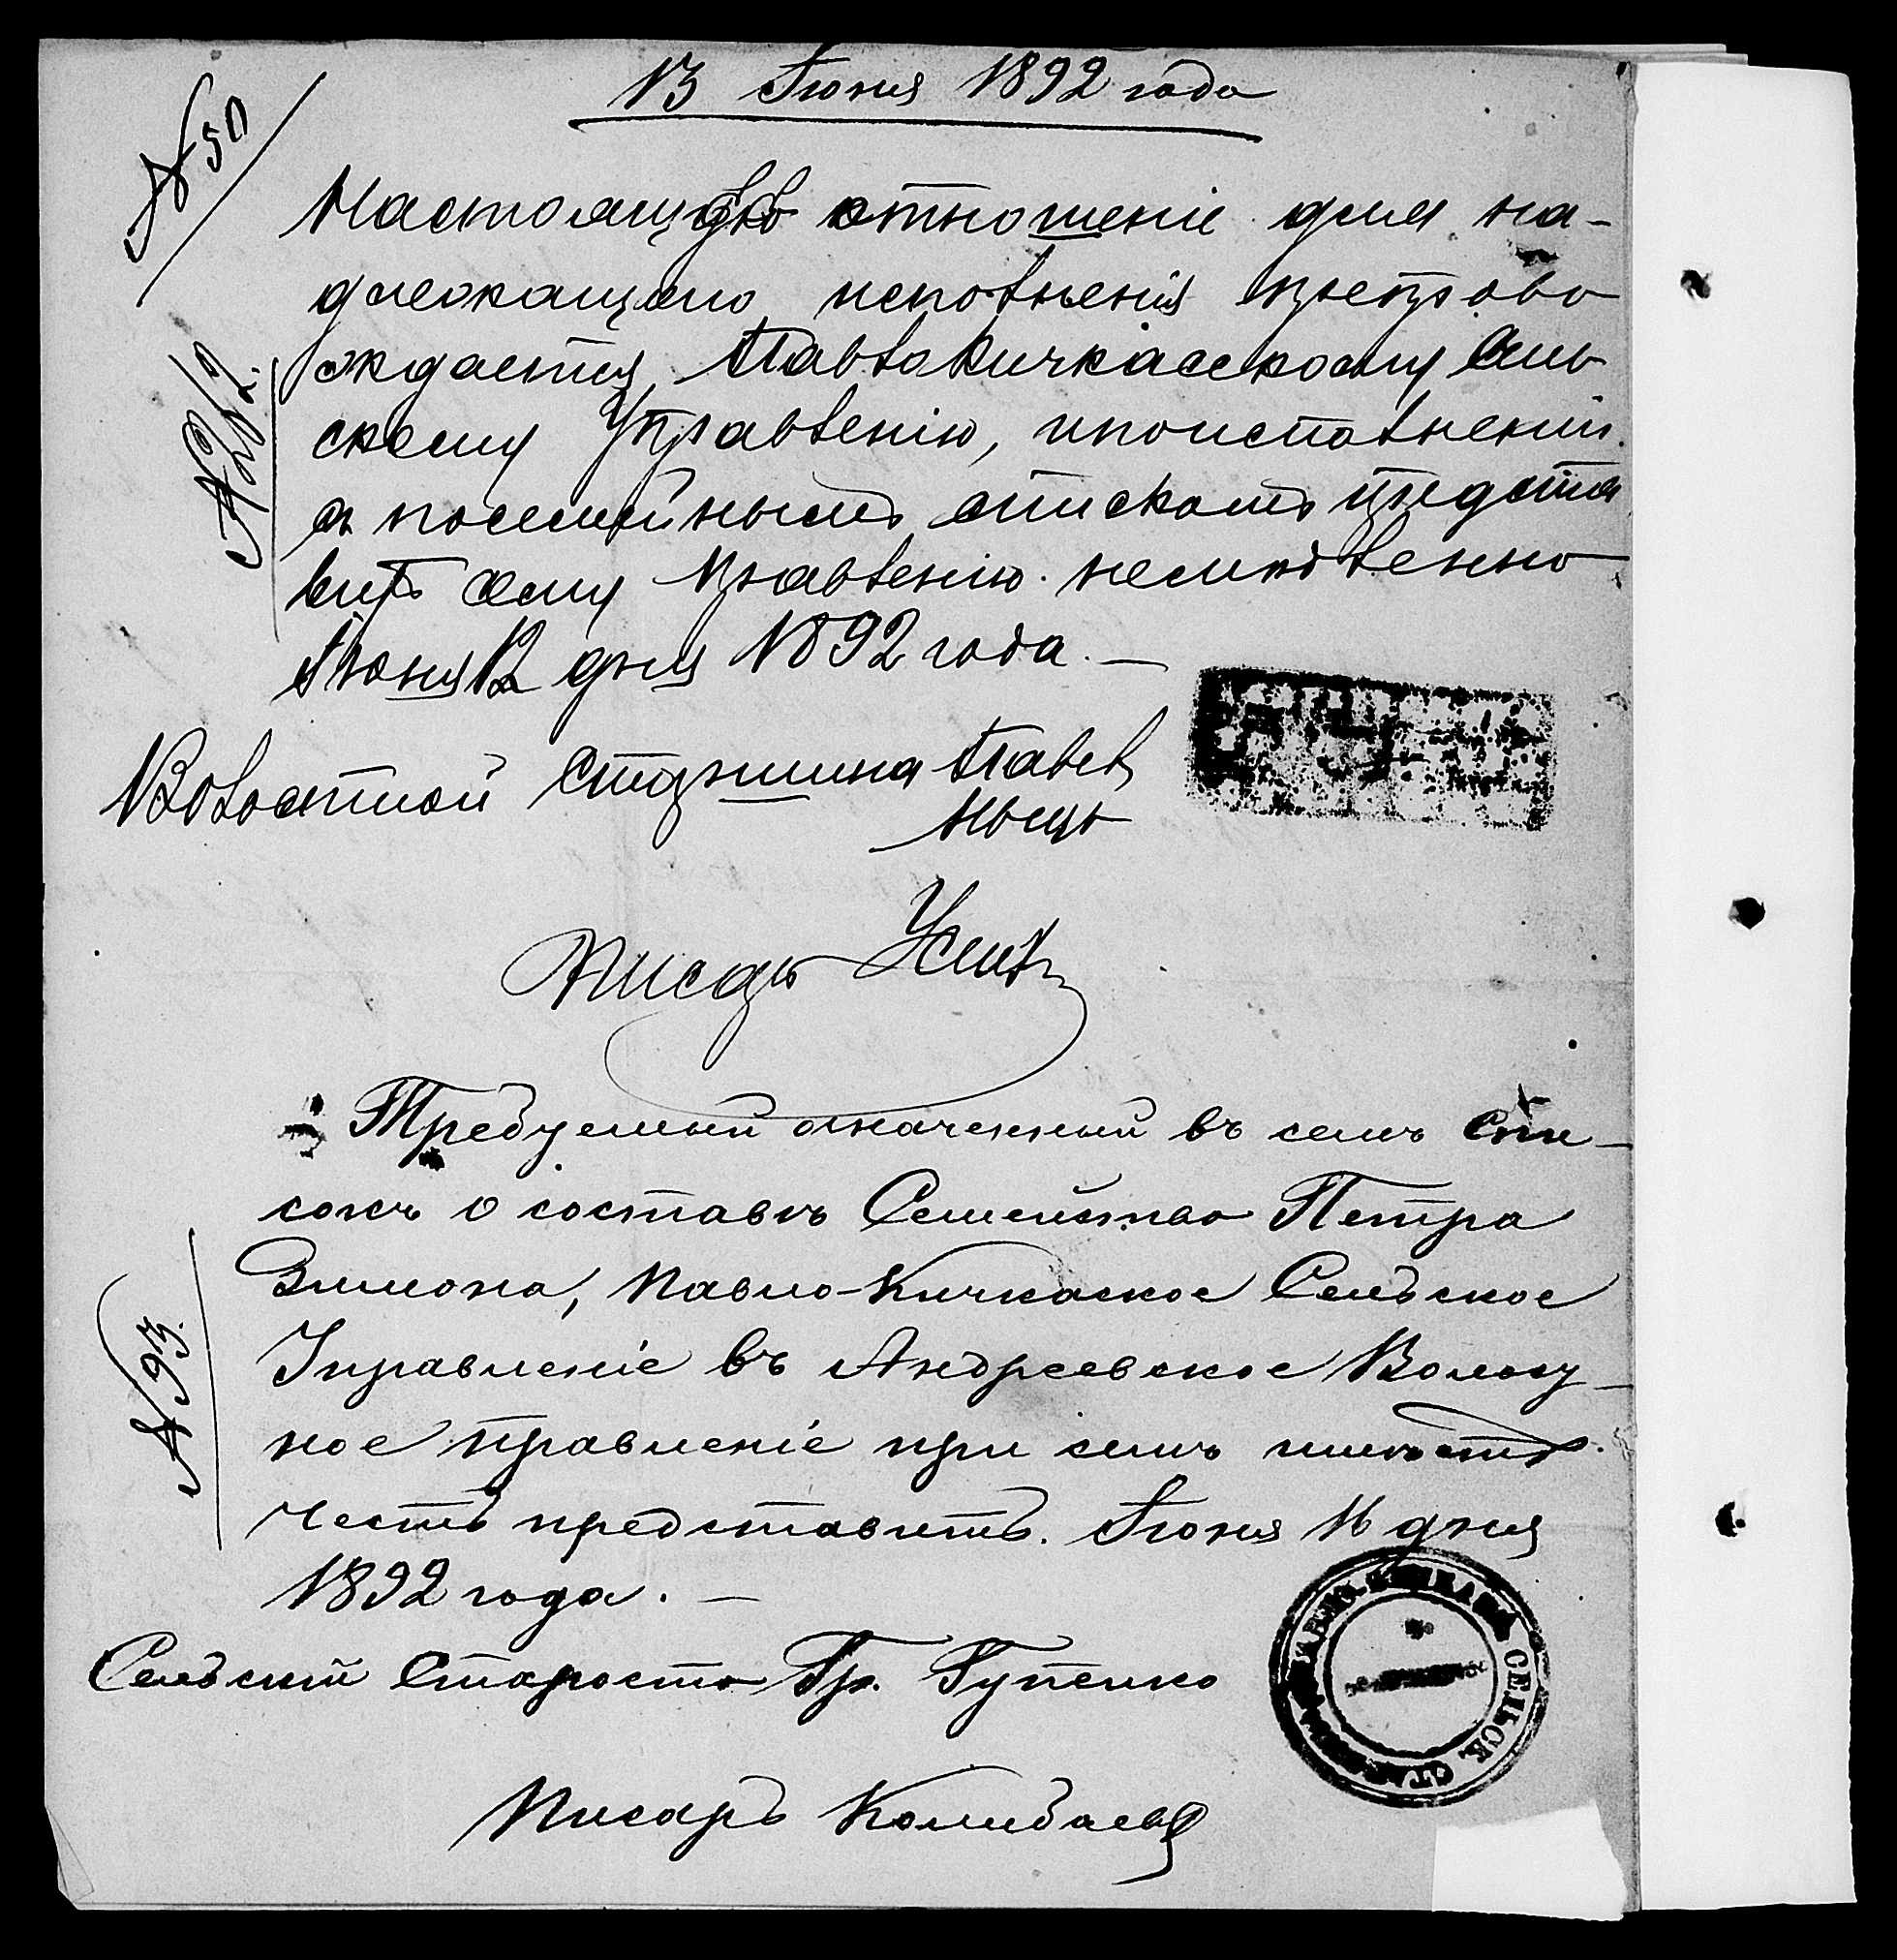 13 Іюня 1892 года
№ 50
Настоящѣе отношеніе для на-
длежащаго исполненія препрово
ждается Павлокичкасскому Сель
скому Управленію, и по исполненіи
съ посемейнымъ спискомъ предста
вить сему Правленію немедленно
Іюня 12 дня 1892 года. —
№ 282.
Волостной Старшина Павел
Писарь
Требуемый означенный въ семъ Спи-
сокъ о составѣ Семейства Петра
Зимона, Павло-Кичкаское Сельское
Управленіе въ Андреевское Волост-
ное правленіе при семъ имѣетъ
честь представить. Іюня 16 дня
1892 года. —
№ 93.
Сельскій Староста Гр. Гупенко
СЕЛЬСК. СТА
Писарь